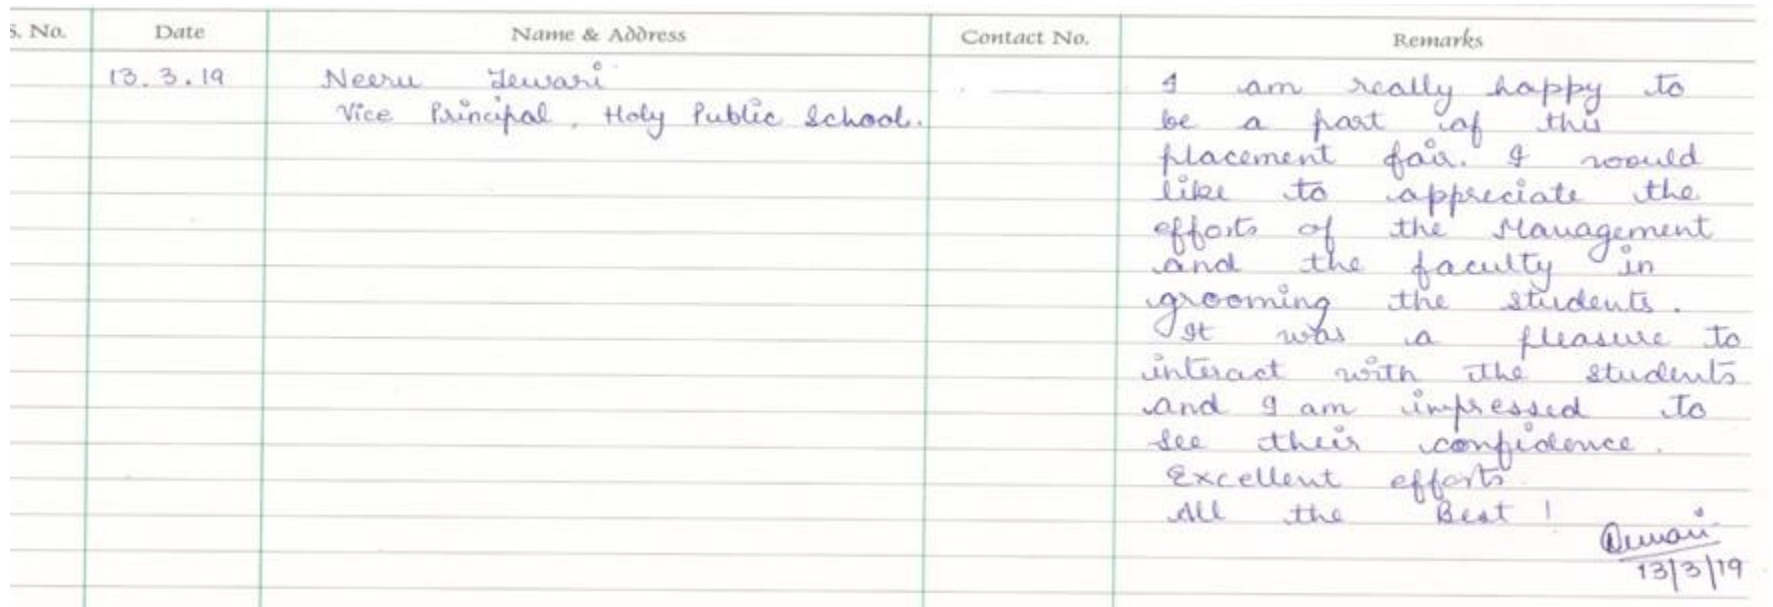 S. No. Date Name & Address Contact No. Remarks
13.3.19 Neeru Tewari
Vice Principal, Holy Public School.
I am really happy to
be a part of this
placement fair. I would
like to appreciate the
efforts of the Management
and the faculty in
grooming the students.
It was a pleasure to
interact with the students
and I am impressed to
see their confidence.
Excellent efforts.
All the Best!
13/3/19